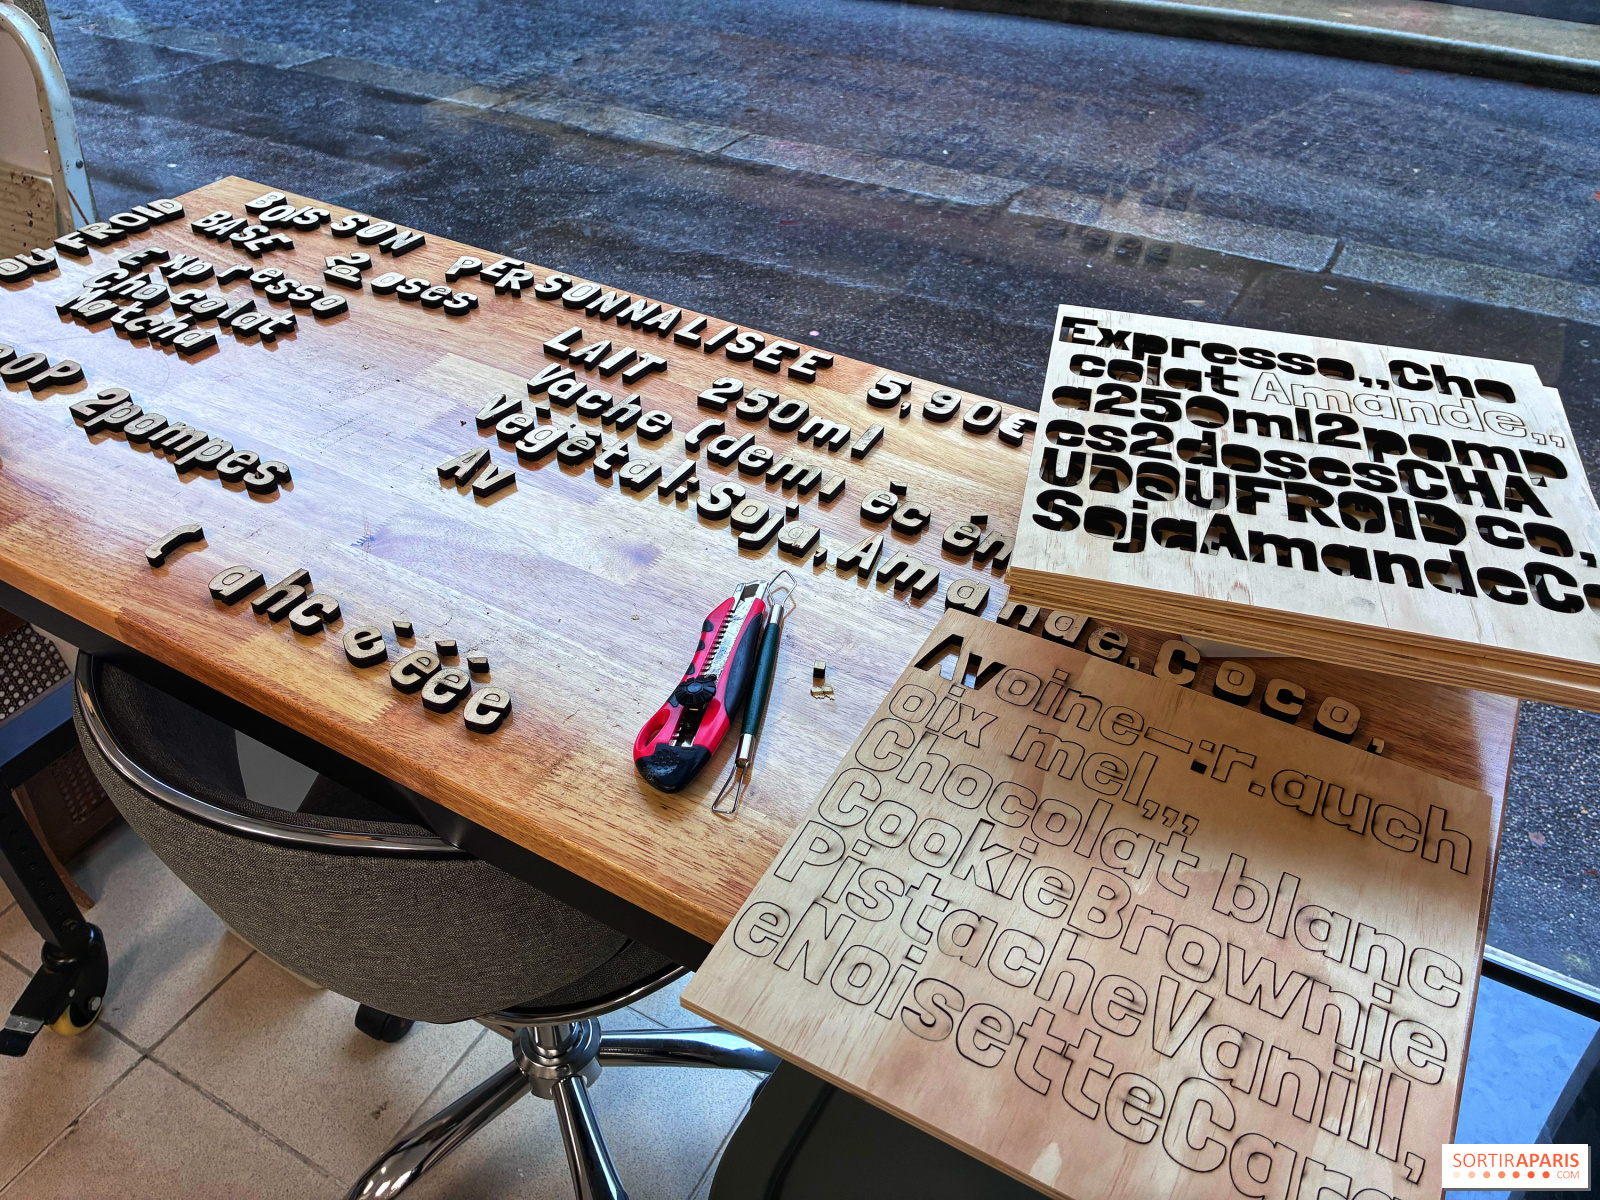 OU FROID
BOISSON PERSONNALISEE 5,90€
BASE 2 Doses
Expresso
Chocolat
Matcha
LAIT 250ml
Vache (demi éc én
Végètal: Soja, Amande, Coco,
Av
OP 2pompes
( ahc e'éëe
Expresso,,Cho
colat Amande,,
a250ml2pomp
es2dosesCHA
UDOUFROIDco,
SojaAmandeCo
Avoine–:r.auch
oix mel,,,
Chocolat blanc
CookieBrownie
PistacheVanill,
eNoisetteCara
SORTIRAPARIS
.COM